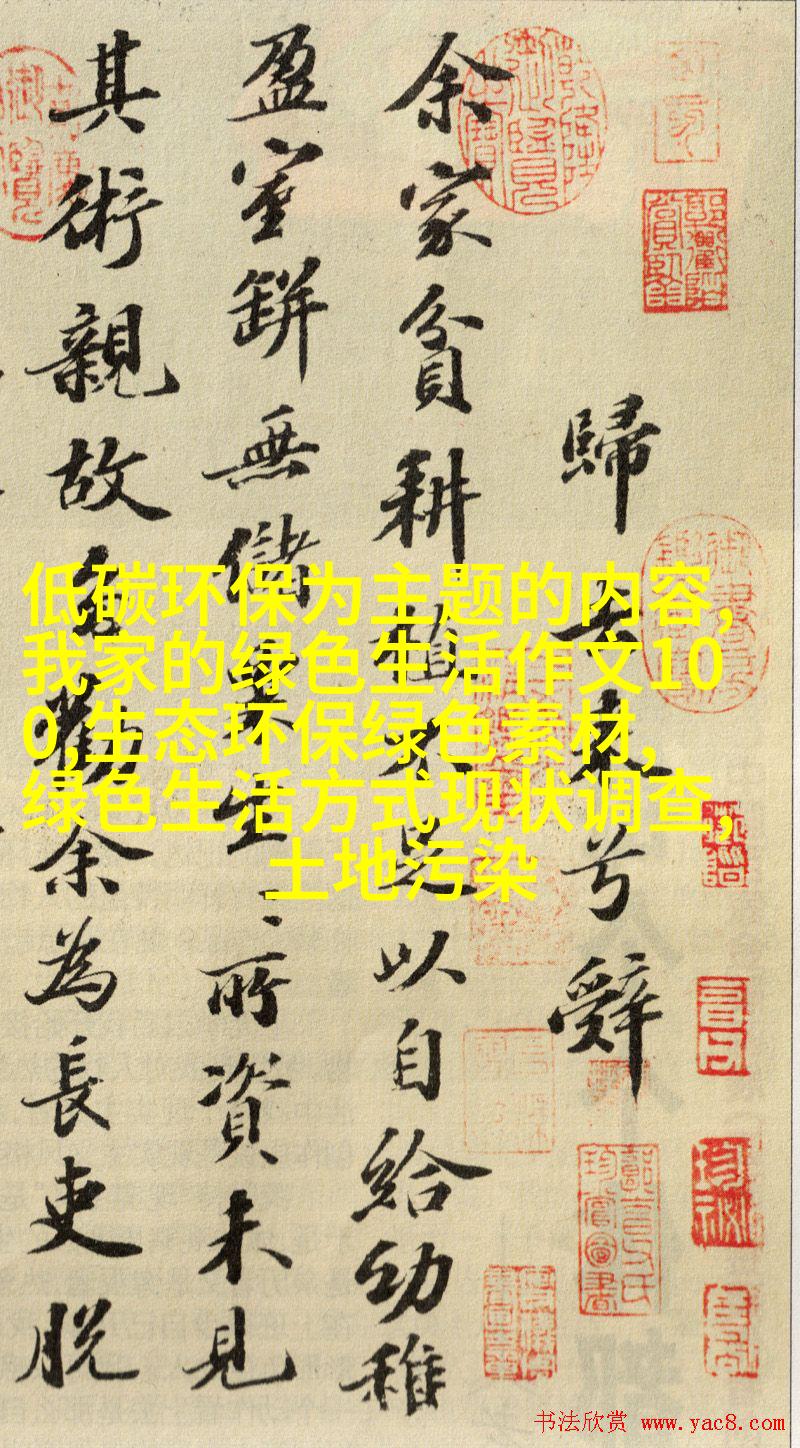 歸去來兮辭
余家貧耕植不足以自給幼稚
盈室缾無儲粟生、所資未見
其術親故多勸余為長吏脫
低碳环保为主题的内容,
我家的绿色生活作文10
0,生态环保绿色素材,
绿色生活方式现状调查,
土地污染
书法欣赏 www.yac8.com